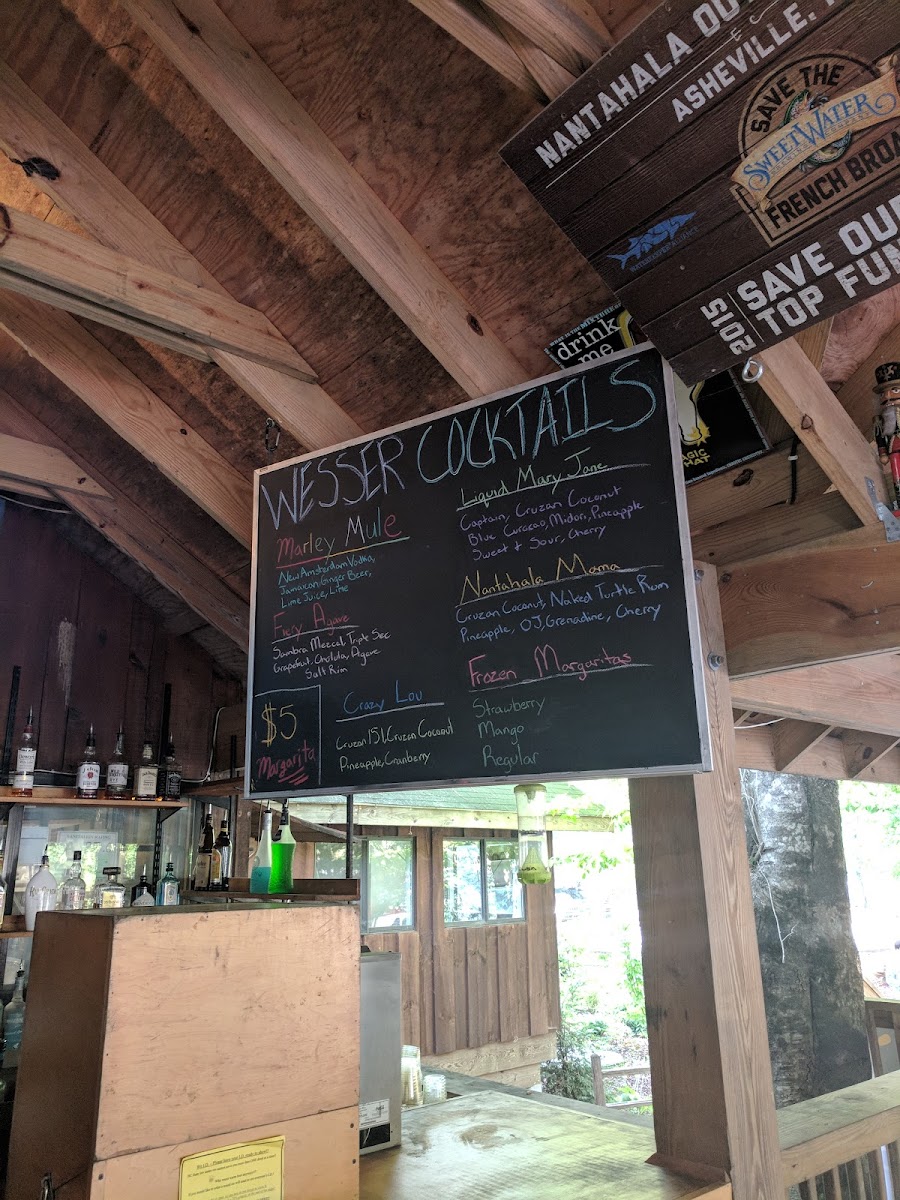 NANTAHALA OU
ASHEVILLE,
SAVE THE
SWEETWATER
FRENCH BROA
2015
SAVE OUR
TOP FUN
drink
me
AGIC
HAT
WESSER COCKTAILS
Marley Mule
New Amsterdam Vodka,
Jamaican Ginger Beer,
Lime Juice, Lime
Fiery Agave
Sombra Mezcal, Triple Sec
Grapefruit, Cholula, Agave
Salt Rim
$5
Margarita
Crazy Lou
Cruzan 151, Cruzan Coconut
Pineapple, Cranberry
Liquid Mary Jane
Captain, Cruzan Coconut
Blue Curacao, Midori, Pineapple
Sweet & Sour, Cherry
Nantahala Mama
Cruzan Coconut, Naked Turtle Rum
Pineapple, OJ, Grenadine, Cherry
Frozen Margaritas
Strawberry
Mango
Regular